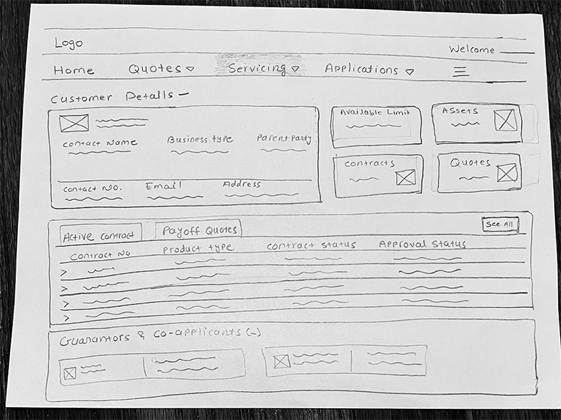 Logo
Welcome
Home Quotes Servicing Applications
Customer Details —
Available Limit
Assets
Contact Name Business type Parent Party
Contracts
Quotes
Contact No. Email Address
Active Contract Payoff Quotes See All
Contract No Product type Contract Status Approval Status
>
>
>
>
Guarantors & Co-applicants (-)